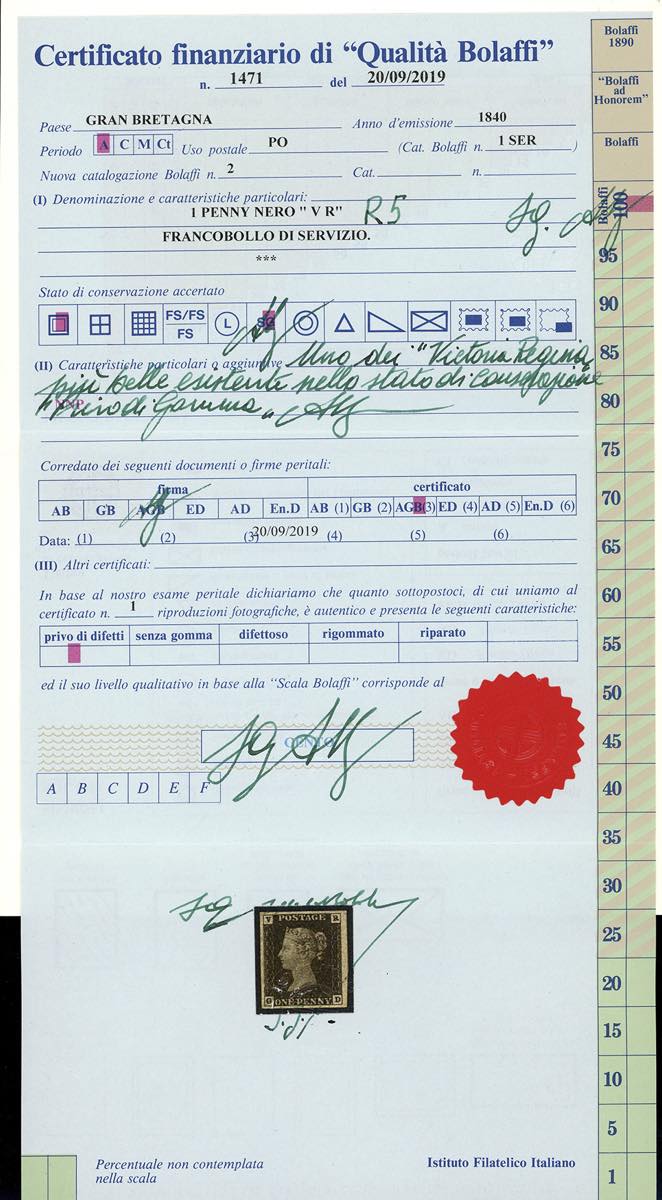 Certificato finanziario di “Qualità Bolaffi”
n. 1471 del 20/09/2019
Paese GRAN BRETAGNA Anno d'emissione 1840
Periodo A C M Ct Uso postale PO (Cat. Bolaffi n. 1 SER )
Nuova catalogazione Bolaffi n. 2 Cat. n.
(I) Denominazione e caratteristiche particolari:
1 PENNY NERO " V R" R5
FRANCOBOLLO DI SERVIZIO.
***
Stato di conservazione accertato
FS/FS
FS
L
SG
(II) Caratteristiche particolari o aggiuntive Uno dei "Victoria Regina"
più belle esistente nello stato di conservazione
NNP
"Privo di Gomma"
Corredato dei seguenti documenti o firme peritali:
firma certificato
AB GB AGB ED AD En.D AB (1) GB (2) AGB(3) ED (4) AD (5) En.D (6)
Data: (1) (2) (3) 20/09/2019 (4) (5) (6)
(III) Altri certificati:
In base al nostro esame peritale dichiariamo che quanto sottopostoci, di cui uniamo al
certificato n. 1 riproduzioni fotografiche, è autentico e presenta le seguenti caratteristiche:
privo di difetti senza gomma difettoso rigommato riparato
ed il suo livello qualitativo in base alla “Scala Bolaffi” corrisponde al
CENTO
A B C D E F
V POSTAGE R
G ONE PENNY D
Percentuale non contemplata
nella scala
Istituto Filatelico Italiano
Bolaffi
1890
“Bolaffi
ad
Honorem”
Bolaffi
Bolaffi
100
95
90
85
80
75
70
65
60
55
50
45
40
35
30
25
20
15
10
5
1